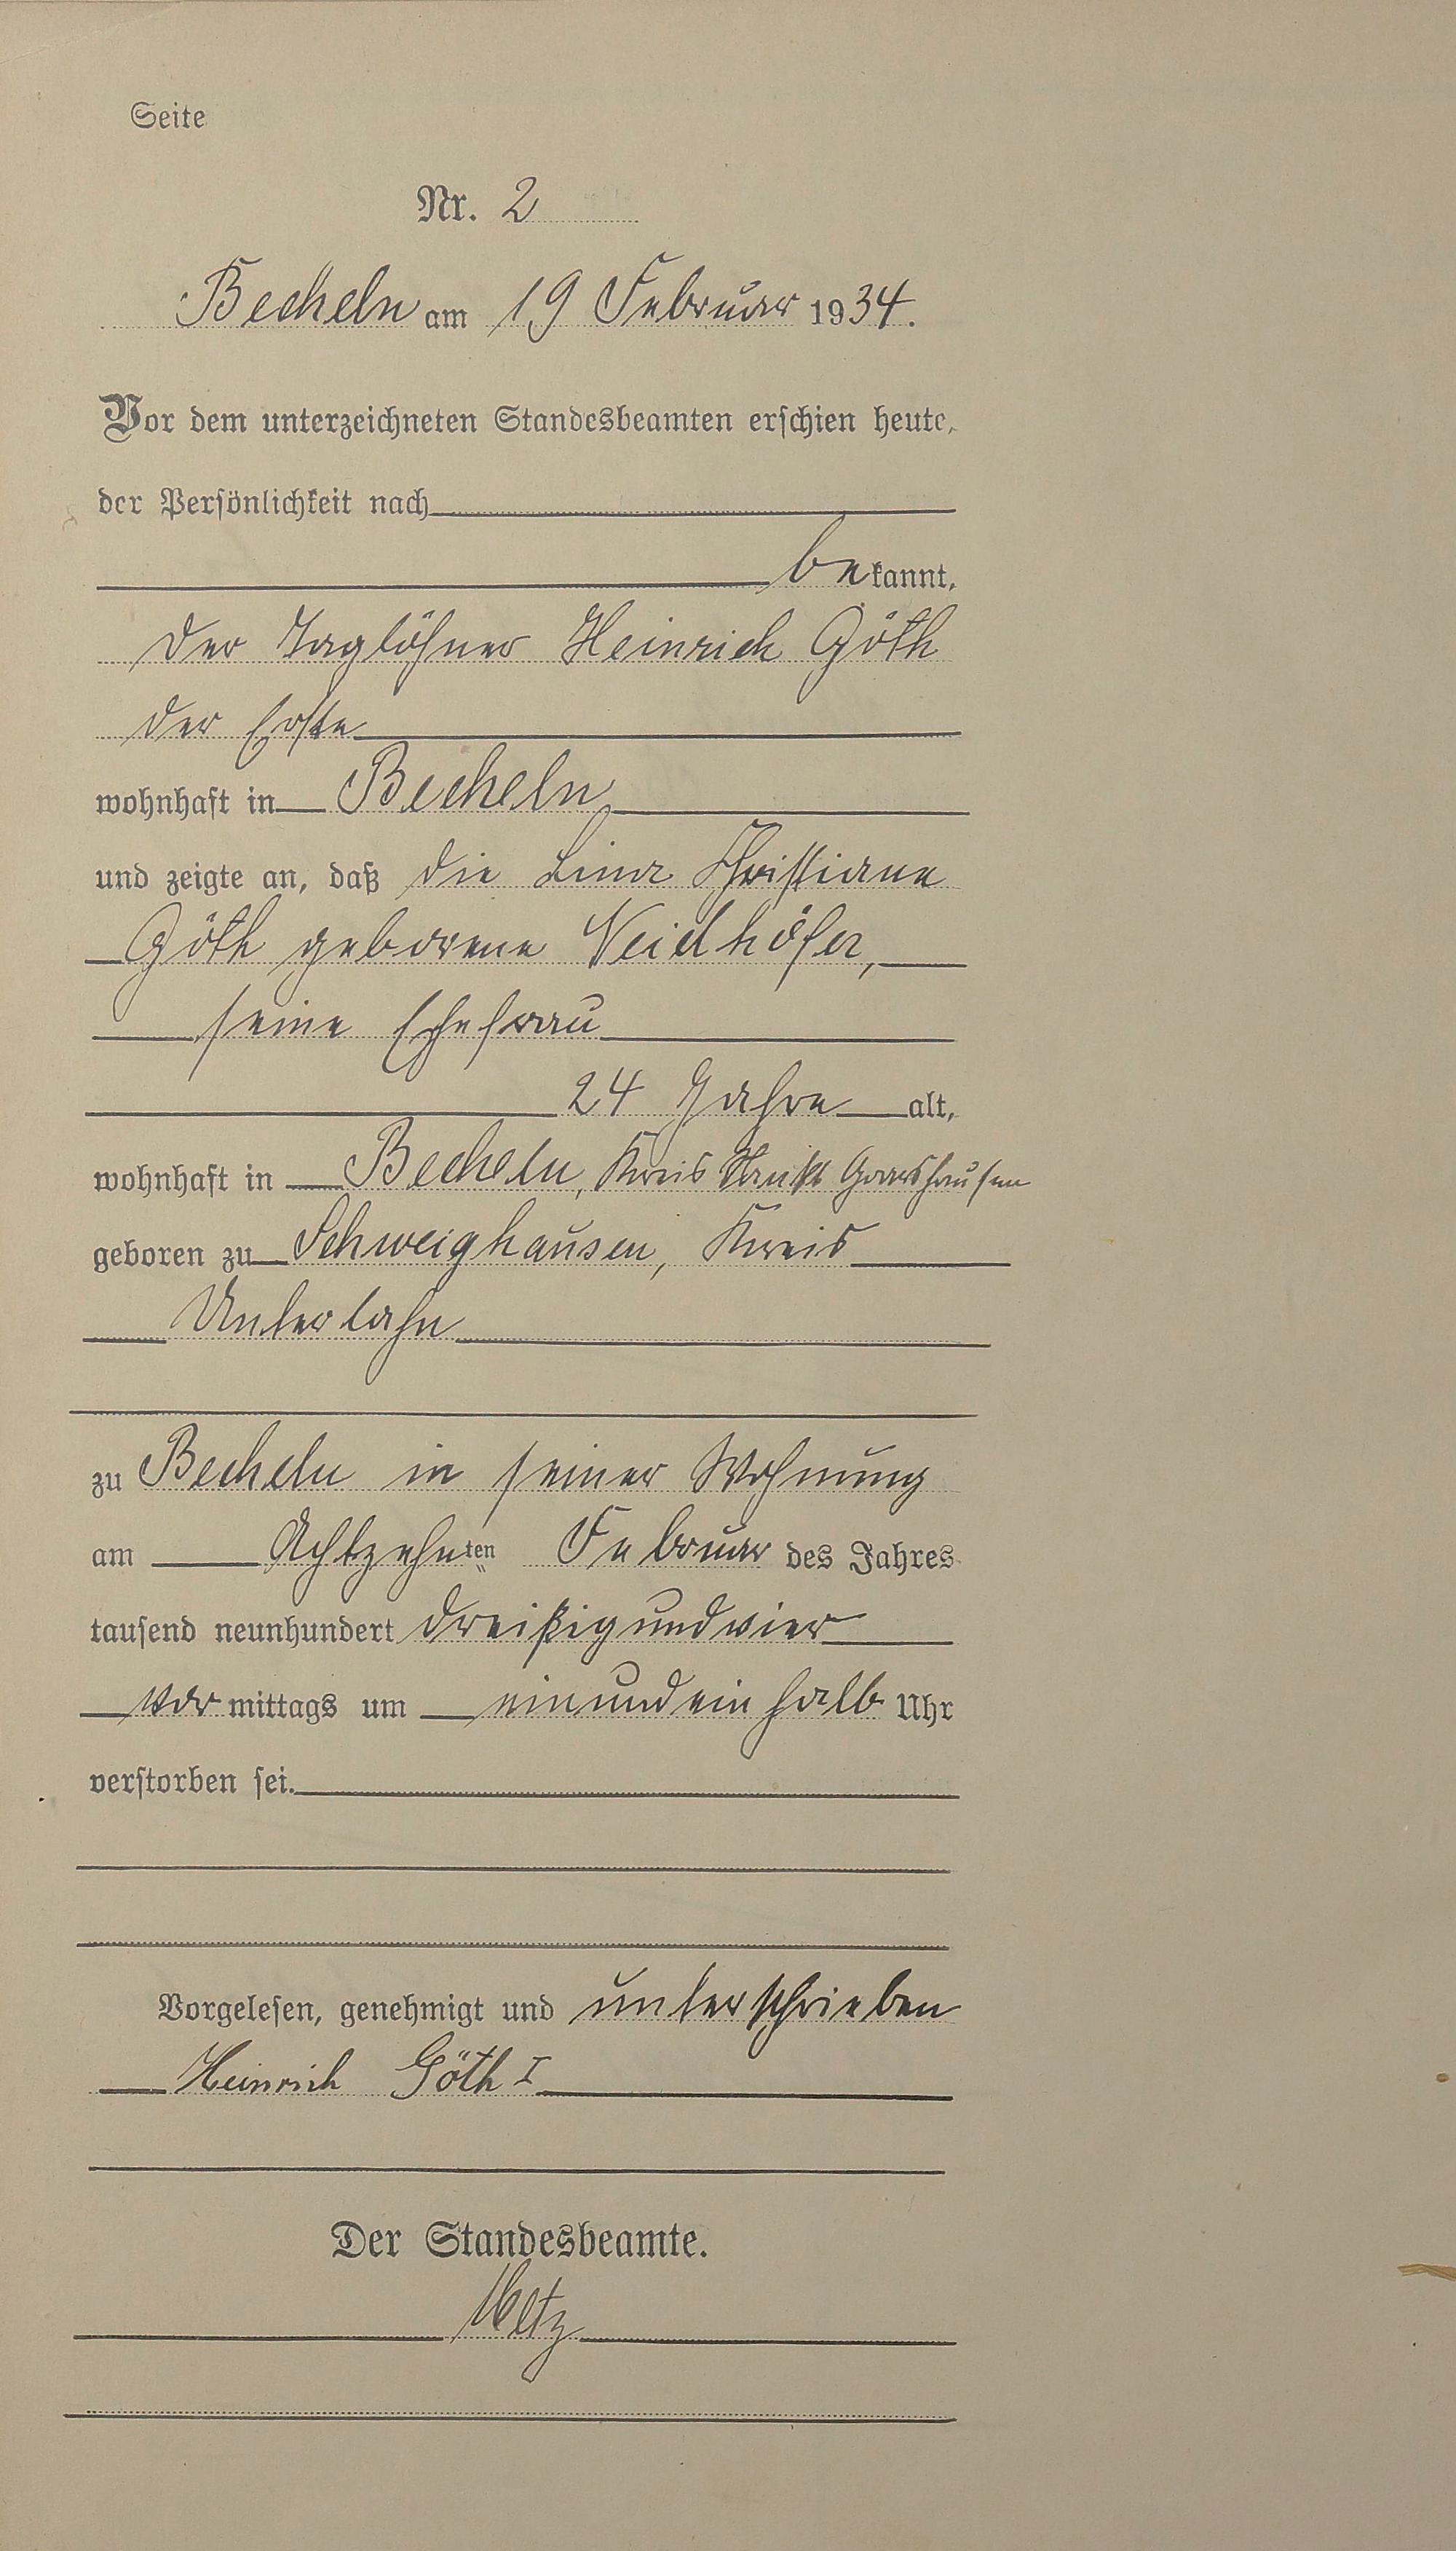 Seite
Nr. 2
Becheln am 19 Februar 1934.
Vor dem unterzeichneten Standesbeamten erschien heute,
der Persönlichkeit nach
bekannt,
der Taglöhner Heinrich Göth
der Erste
wohnhaft in Becheln,
und zeigte an, daß die Lina Christiane
Göth geborene Neidhöfer,
seine Ehefrau
24 Jahre alt,
wohnhaft in Becheln, Kreis Sankt Goarshausen
geboren zu Schweighausen, Kreis
Unterlahn
zu Becheln in seiner Wohnung
am Achtzehnten Februar des Jahres
tausend neunhundert dreißigundvier
vormittags um einundein halb Uhr
verstorben sei.
Vorgelesen, genehmigt und unterschrieben
Heinrich Göth I
Der Standesbeamte.
Metz